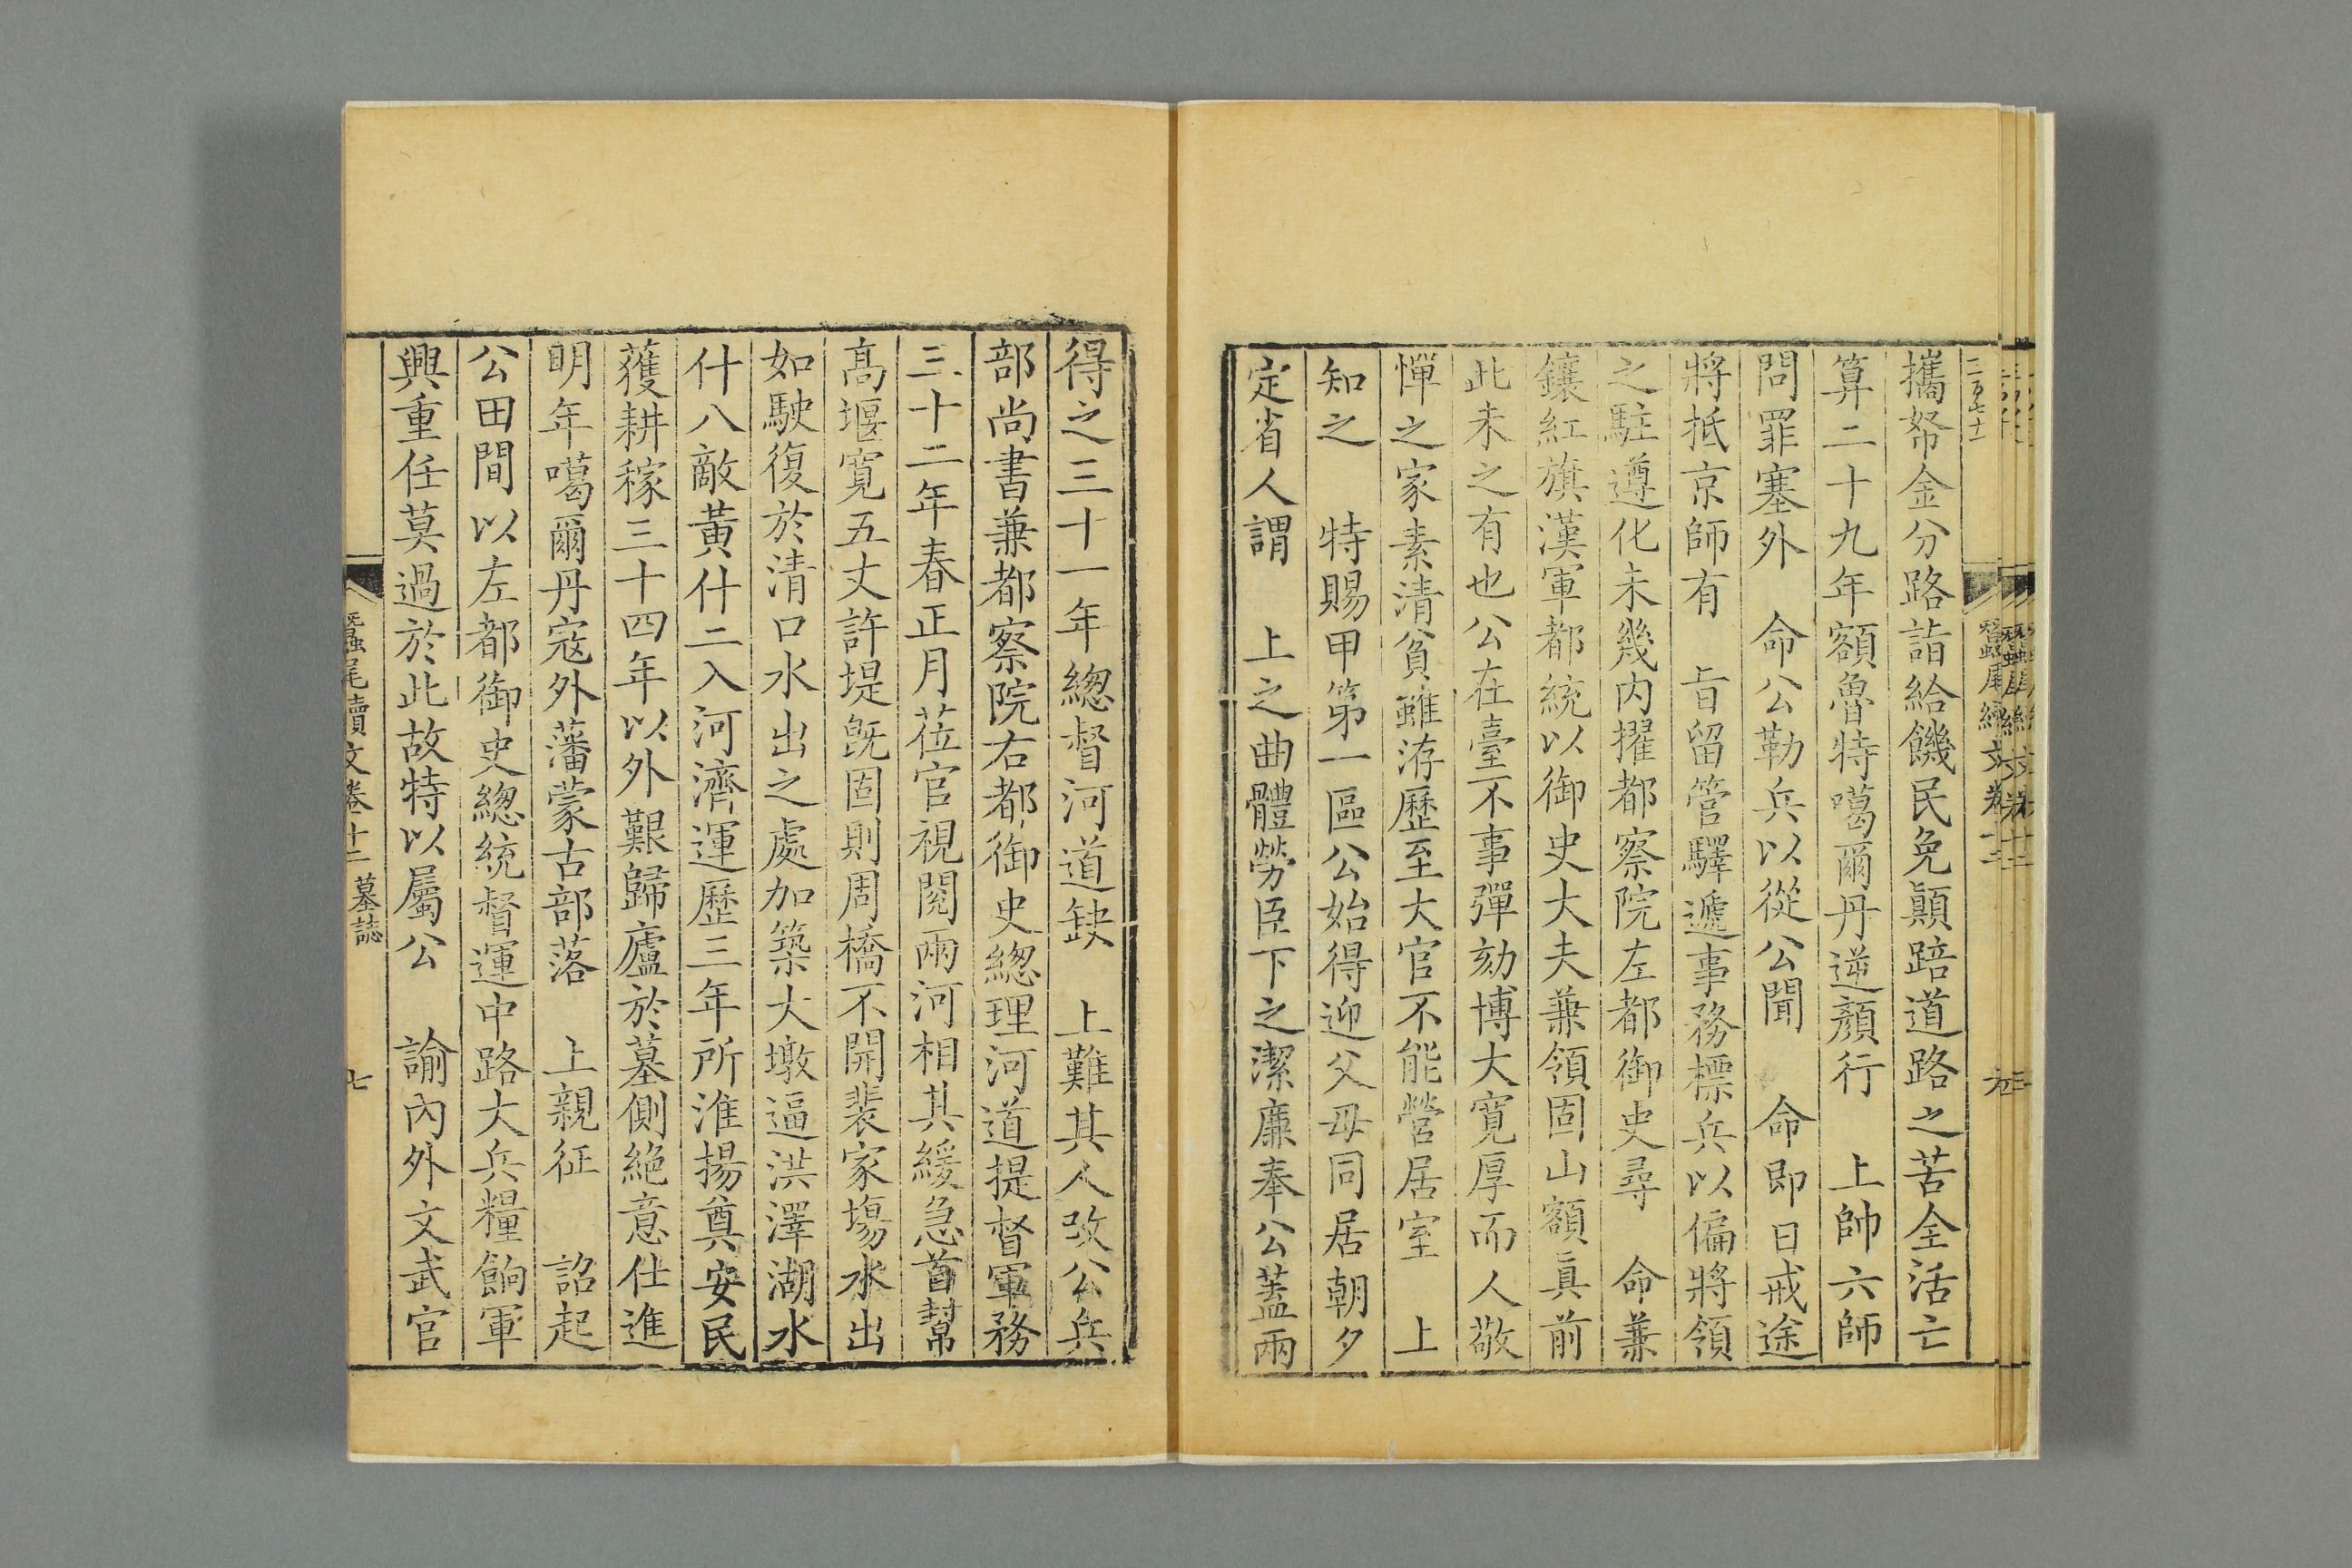 二百七十一
攜帑金分路詣給饑民免顚踣道路之苦全活亡
算二十九年額魯特噶爾丹逆顏行　上帥六師
問罪塞外　命公勒兵以從公聞　命即日戒途
將抵京師有　旨留管驛遞事務標兵以偏將領
之駐遵化未幾內擢都察院左都御史尋　命兼
鑲紅旗漢軍都統以御史大夫兼領固山額眞前
此未之有也公在臺不事彈劾博大寬厚而人敬
憚之家素清貧雖洊歷至大官不能營居室　上
知之　特賜甲第一區公始得迎父母同居朝夕
定省人謂　上之曲體勞臣下之潔廉奉公蓋兩
得之三十一年總督河道缺　上難其人改公兵
部尚書兼都察院右都御史總理河道提督軍務
三十二年春正月莅官視閱兩河相其緩急首幇
高堰寬五丈許堤旣固則周橋不開裴家塲水出
如駛復於清口水出之處加築大墩逼洪澤湖水
什八敵黃什二入河濟運歷三年所淮揚奠安民
獲耕稼三十四年以外艱歸廬於墓側絶意仕進
明年噶爾丹寇外藩蒙古部落　上親征　詔起
公田間以左都御史總統督運中路大兵糧餉軍
興重任莫過於此故特以屬公　諭內外文武官
蠶尾續文卷十二　墓誌　七